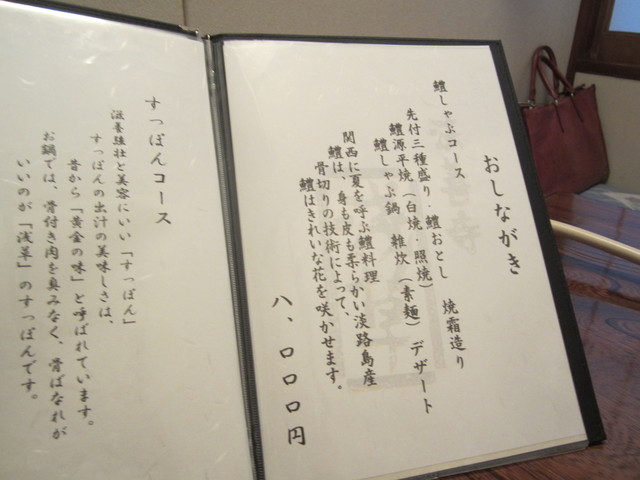 おしながき
鱧しゃぶコース
先付三種盛り・鱧おとし 焼霜造り
鱧源平焼(白焼・照焼)
鱧しゃぶ鍋 雑炊(素麺) デザート
関西に夏を呼ぶ鱧料理
鱧は、身も皮も柔らかい淡路島産
骨切りの技術によって、
鱧はきれいな花を咲かせます。
八、〇〇〇円
すっぽんコース
滋養強壮と美容にいい「すっぽん」
すっぽんの出汁の美味しさは、
昔から「黄金の味」と呼ばれています。
お鍋では、骨付き肉を臭みなく、骨ばなれが
いいのが「浅草」のすっぽんです。